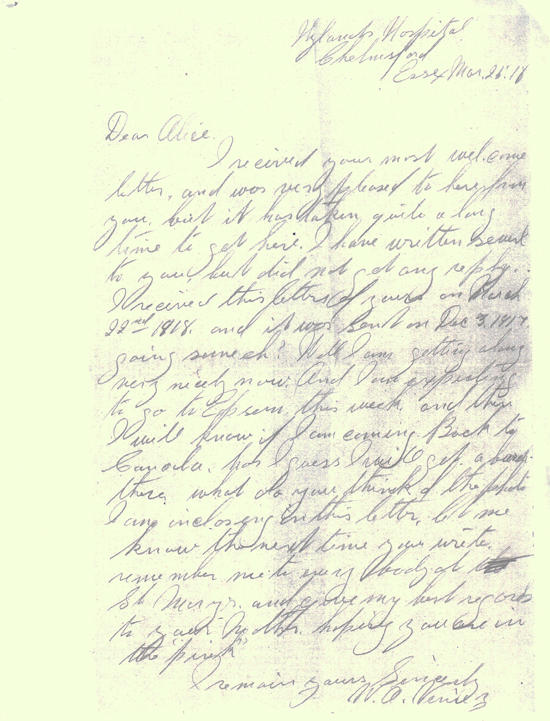 Hylands Hospital
Chelmsford
Essex Mar. 26. 18
Dear Alice.
I received your most welcome
letter, and was very pleased to hear from
you, but it has taken quite a long
time to get here. I have written
to you, but did not get any reply.
I received this letter of yours on March
22nd 1918. and it was sent on Dec 3. 1917
going some eh? Well I am getting along
very nicely now. And I am expecting
to go to Epsom this week and then
I will know if I am coming Back to
Canada. has I guess I will get a
there. what do you think of the photo
I am inclosing in this letter, let me
know the next time you write.
remember me to every body at the
St Marys. and give my best regards
to your Mother. hoping you are in
the "pink"
I remain yours Sincerely
W. A.